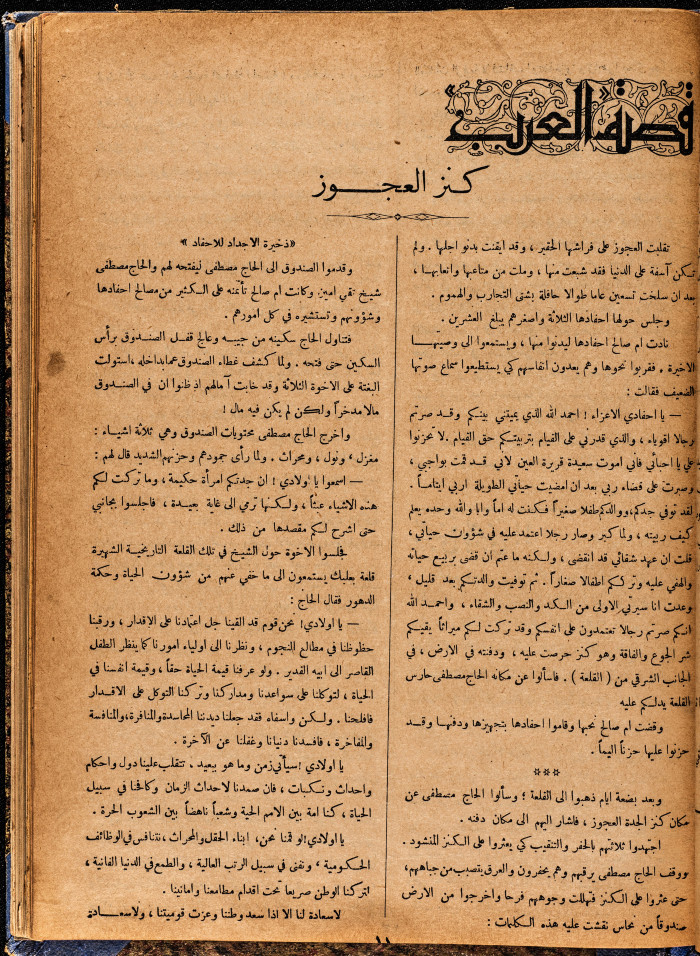 قصة العرب
كنز العجوز
تقلبت العجوز على فراشها الحقير، وقد ايقنت بدنو اجلها. ولم
تكن آسفة على الدنيا فقد شبعت منها، وملت من متاعبها واتعابها،
بعد ان سلخت تسعين عاما طوالا حافلة بشتى التجارب والهموم.
وجلس حولها احفادها الثلاثة واصغرهم يبلغ العشرين.
نادت ام صالح احفادها ليدنوا منها، ويستمعوا الى وصيتها
الاخيرة. فقربوا نحوها وهم يعدون انفاسهم كي يستطيعوا سماع صوتها
الضعيف فقالت:
— يا احفادي الاعزاء! احمد الله الذي يميتني بينكم وقد صرتم
رجالا اقوياء، والذي قدرني على القيام بتربيتكم حق القيام. لا تحزنوا
علي يا احبائي فاني اموت سعيدة قريرة العين لاني قد قمت بواجبي،
وصبرت على قضاء ربي بعد ان امضيت حياتي الطويلة اربي ايتاما.
لقد توفي جدكم، ووالدكم طفلا صغيراً فكنت له اماً وابا والله وحده يعلم
كيف ربيته، ولما كبر وصار رجلا اعتمد عليه في شؤوان حياتي،
قلت ان عهد شقائي قد انقضى، ولكنه ما عتم ان قضى بربيع حياته
والهفي عليه وترككم اطفالا صغاراً. ثم توفيت والدتكم بعد قليل،
وعدت انا سيرتي الاولى من الكد والنصب والشقاء، واحمد الله
انكم صرتم رجالا تعتمدون على انفسكم وقد تركت لكم ميراثاً يقيكم
شر الجوع والفاقة وهو كنز حرصت عليه، ودفنته في الارض، في
الجانب الشرقي من (القلعة). فاسألوا عن مكانه الحاج مصطفى حارس
القلعة يدلكم عليه
وقضت ام صالح نحبها وقاموا احفادها بتجهيزها ودفنها وقد
حزنوا عليها حزناً اليماً.
***
وبعد بضعة ايام ذهبوا الى القلعة؛ وسألوا الحاج مصطفى عن
مكان كنز الجدة العجوز، فاشار اليهم الى مكان دفنه.
اجتهدوا ثلاثتهم بالحفر والتنقيب كي يعثروا على الكنز المنشود.
ووقف الحاج مصطفى يرقبهم وهم يحفرون والعرق يتصبب من جباههم،
حتى عثروا على الكنز فتهللت وجوههم فرحا واخرجوا من الارض
صندوقاً من نحاس نقشت عليه هذه الكلمات:
«ذخيرة الاجداد للاحفاد»
وقدموا الصندوق الى الحاج مصطفى ليفتحه لهم والحاج مصطفى
شيخ تقي امين وكانت ام صالح تأتمنه على الكثير من مصالح احفادها
وشؤونهم وتستشيره في كل امورهم.
فتناول الحاج سكينه من جيبه وعالج قفل الصندوق برأس
السكين حتى فتحه. ولما كشف غطاء الصندوق عما بداخله، استولت
البغتة على الاخوة الثلاثة وقد خابت آمالهم اذ ظنوا ان في الصندوق
مالا مدخراً ولكن لم يكن فيه مال!
واخرج الحاج مصطفى محتويات الصندوق وهي ثلاثة اشياء:
مغزل، ونول، ومحراث. ولما رأى جمودهم وحزنهم الشديد قال لهم:
— اسمعوا يا اولادي! ان جدتكم امرأة حكيمة، وما تركت لكم
هذه الاشياء عبثاً، ولكنها ترمي الى غاية بعيدة، فاجلسوا بجانبي
حتى اشرح لكم مقصدها من ذلك.
فجلسوا الاخوة حول الشيخ في تلك القلعة التاريخية الشهيرة
قلعة بعلبك يستمعون الى ما خفي عنهم من شؤون الحياة وحكمة
الدهور فقال الحاج:
— يا اولادي! نحن قوم قد القينا جل اعتمادنا على الاقدار، ورقبنا
حظوظنا في مطالع النجوم، ونظرنا الى اولياء امورنا كما ينظر الطفل
القاصر الى ابيه القدير. ولو عرفنا قيمة الحياة حقاً، وقيمة انفسنا في
الحياة، لتوكلنا على سواعدنا ومداركنا وتركنا التوكل على الاقدار
فافلحنا. ولكن واسفاه فقد جعلنا ديدننا المحاسدة والمنافرة، والمنافسة
والمفاخرة، فافسدنا دنيانا وغفلنا عن الآخرة.
يا اولادي! سيأتي زمن وما هو ببعيد، تتقلب علينا دول واحكام
واحداث ونكبات، فان صمدنا لاحداث الزمان وكافحنا في سبيل
الحياة، كنا امة بين الامم الحية وشعباً ناهضاً بين الشعوب الحرة.
يا اولادي! لو قمنا نحن، ابناء الحقل والمحراث، نتنافس في الوظائف
الحكومية، ونفنى في سبيل الرتب العالية، والطمع في الدنيا الفانية،
لتركنا الوطن صريعا تحت اقدام مطامعنا وامانينا.
لا سعادة لنا الا اذا سعد وطننا وعزت قوميتنا، ولا سعادة